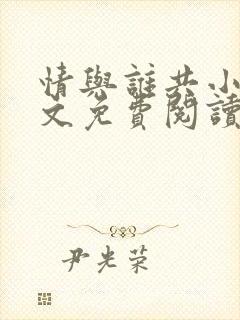 情與誰共小
文免費閱讀
尹光荣